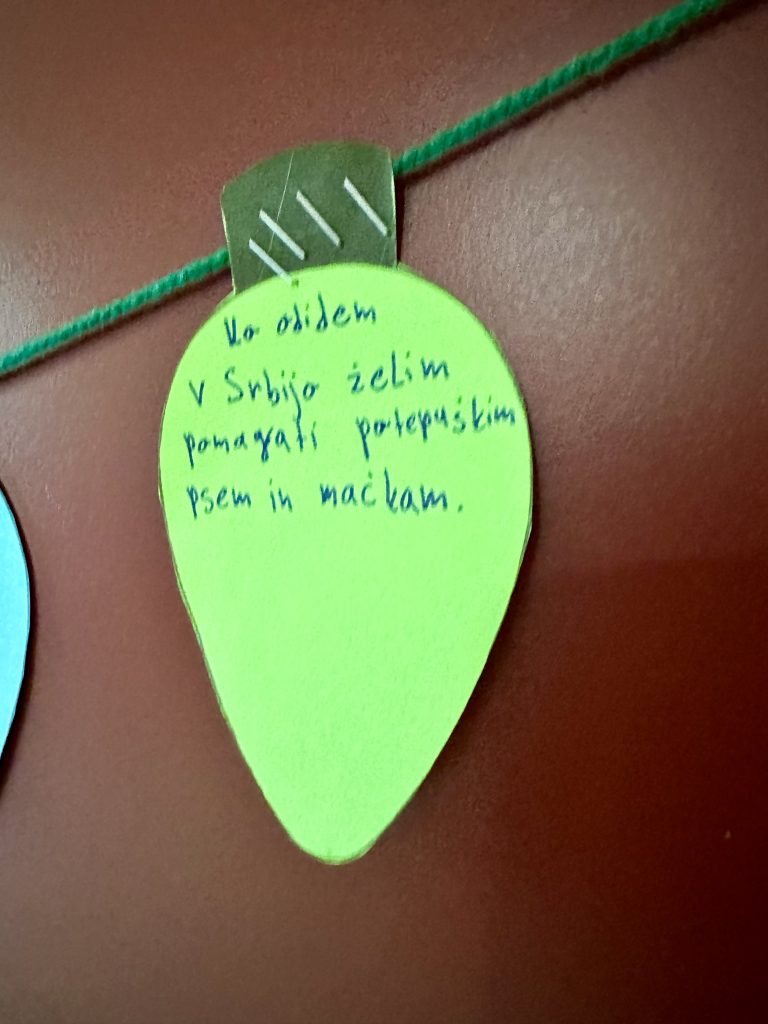 Ko odidem
v Srbijo želim
pomagati potepuškim
psem in mačkam.